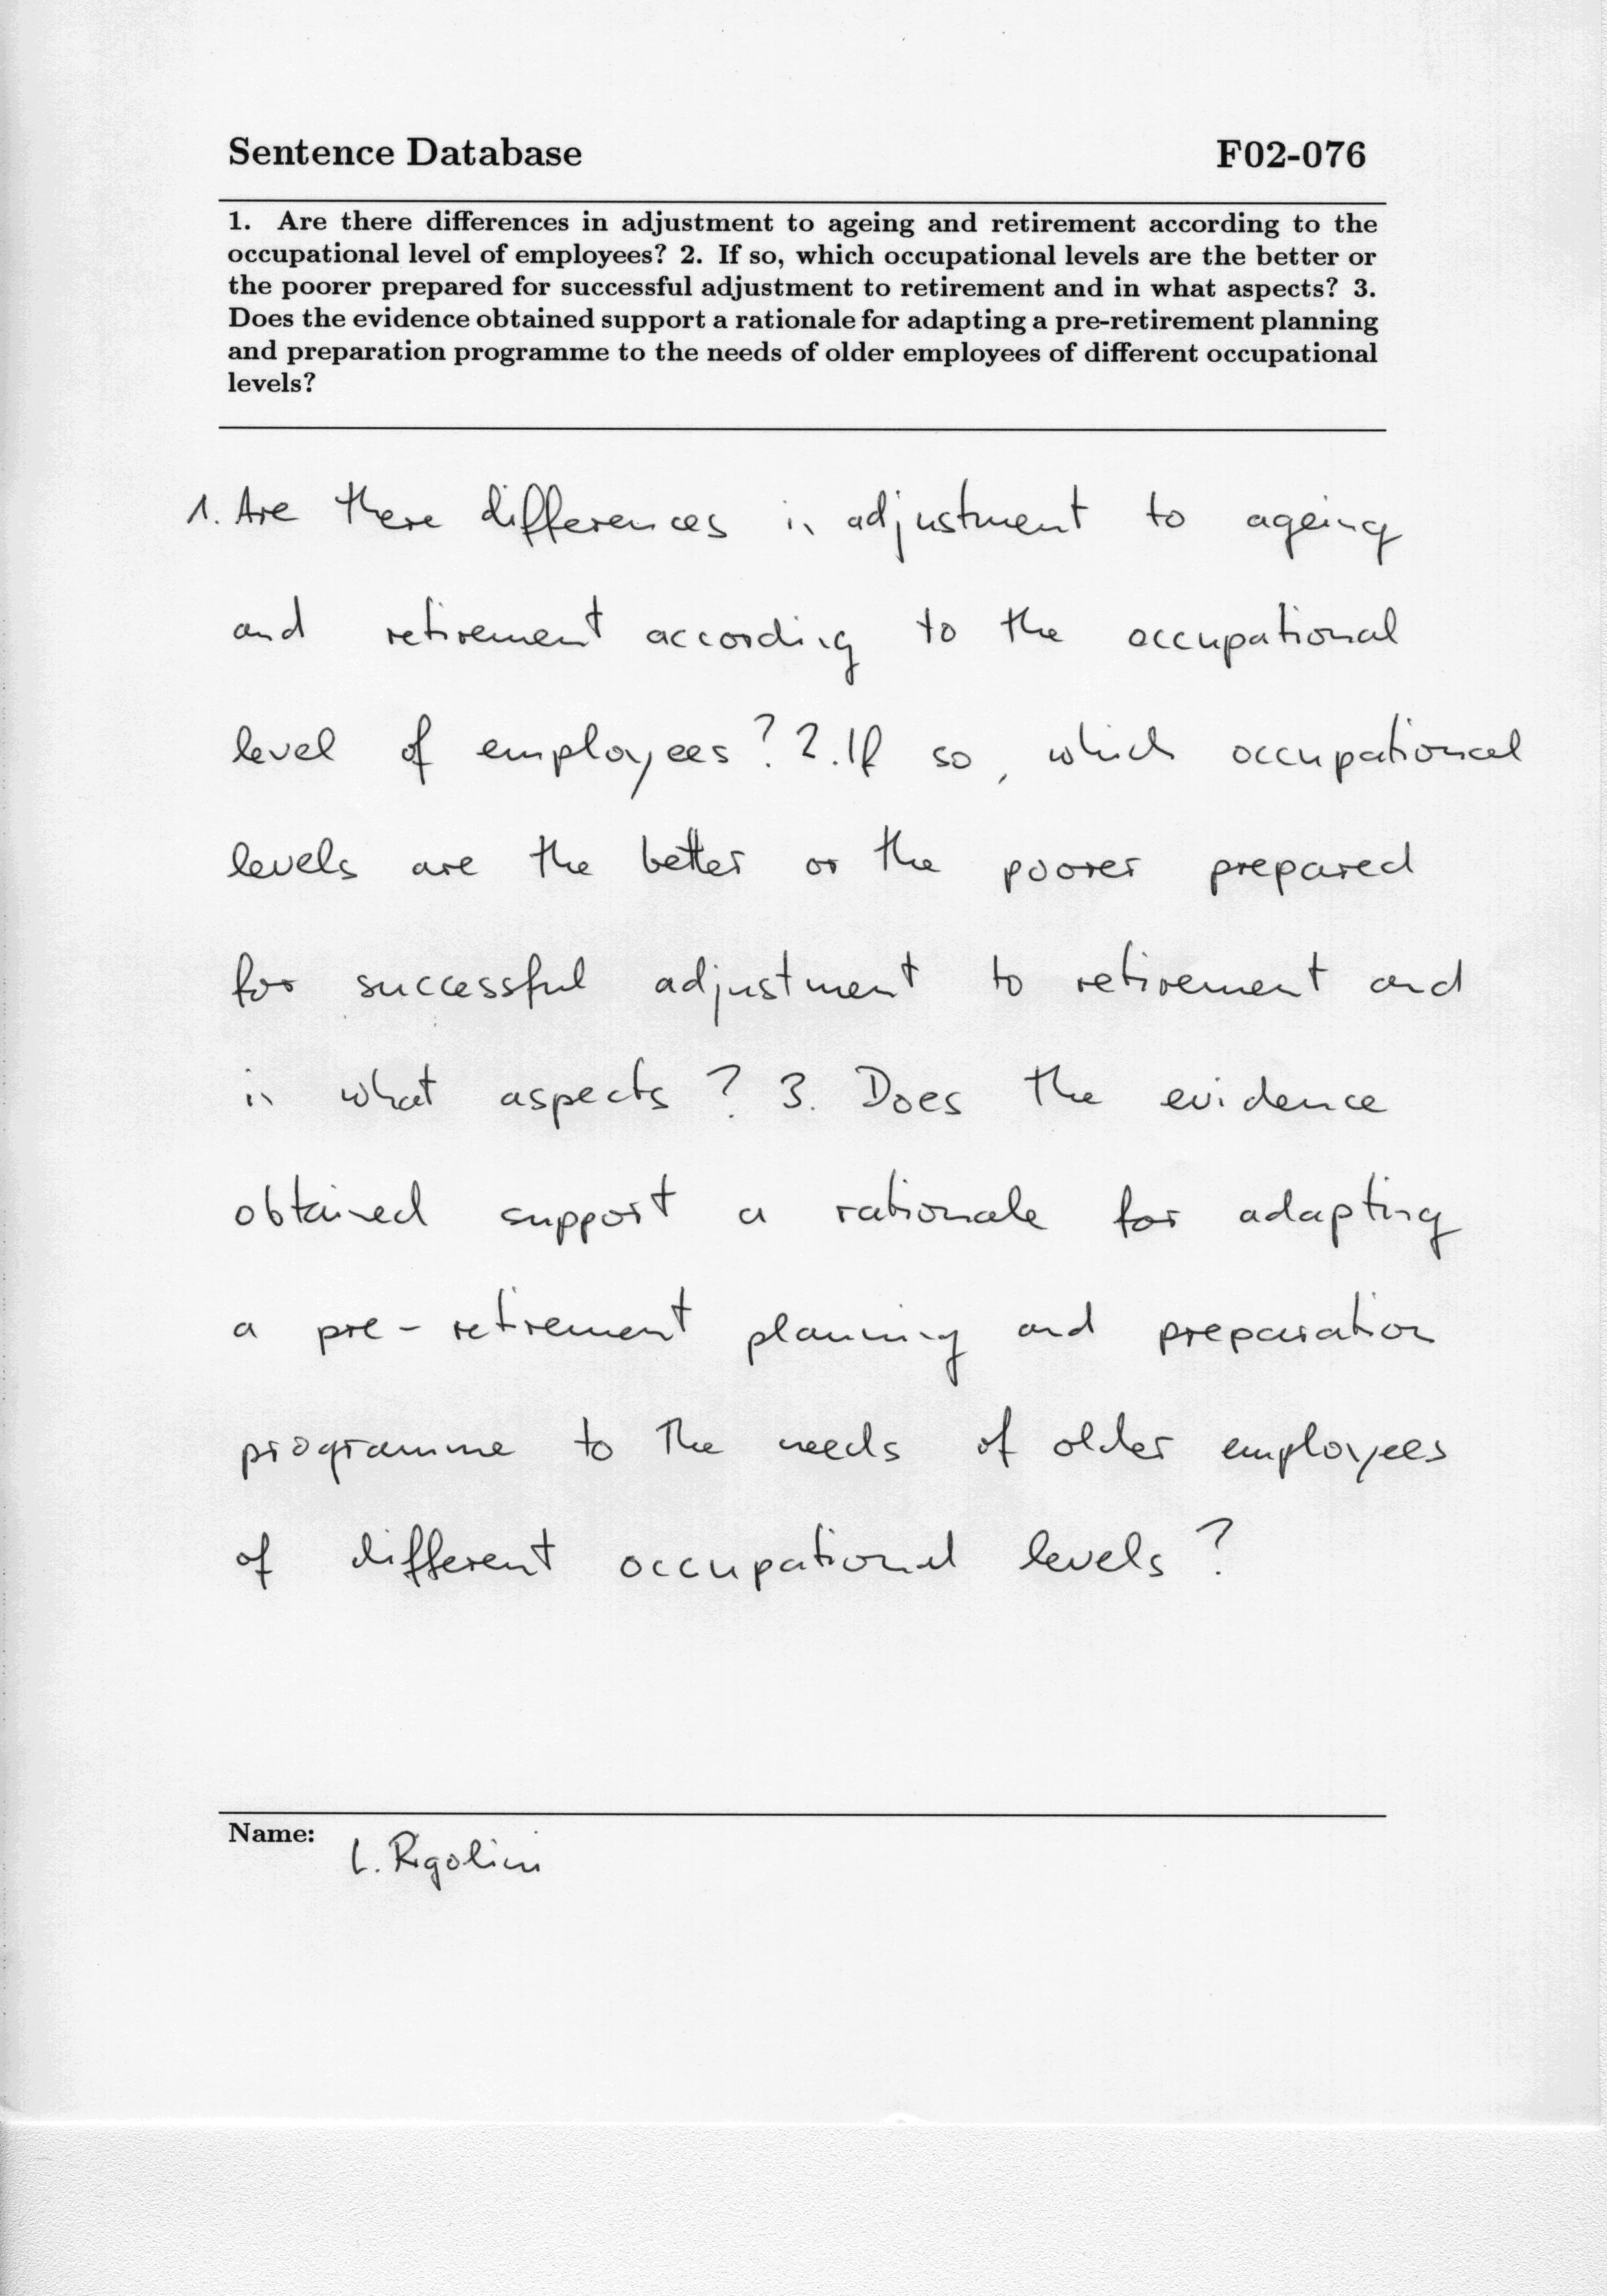 Sentence Database F02-076
1. Are there differences in adjustment to ageing and retirement according to the
occupational level of employees? 2. If so, which occupational levels are the better or
the poorer prepared for successful adjustment to retirement and in what aspects? 3.
Does the evidence obtained support a rationale for adapting a pre-retirement planning
and preparation programme to the needs of older employees of different occupational
levels?
1. Are there differences in adjustment to ageing
and retirement according to the occupational
level of employees? 2. If so, which occupational
levels are the better or the poorer prepared
for successful adjustment to retirement and
in what aspects? 3. Does the evidence
obtained support a rationale for adapting
a pre-retirement planning and preparation
programme to the needs of older employees
of different occupational levels?
Name: L. Rigolini